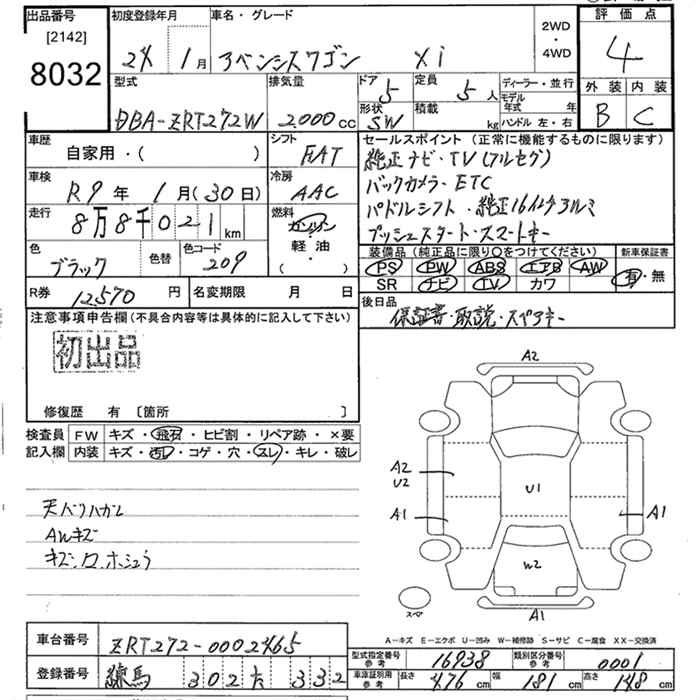 出品番号 [2142] 8032
初度登録年月 24年 1月
車名・グレード アベンシスワゴン Xi
2WD・4WD
評価点 4
外装 B 内装 C
型式 DBA-ZRT272W
排気量 2000cc
ドア 5 形状 SW
定員 5人 積載 kg
ディーラー・並行
モデル年式 年
ハンドル 左・右
車歴 自家用・( )
シフト FAT
車検 R9年 1月(30日)
冷房 AAC
走行 8万8千021km
燃料 ガソリン・軽油・( )
色 ブラック 色替
色コード 209
R券 12,570円
名変期限 月 日
セールスポイント(正常に機能するものに限ります)
純正ナビ・TV(フルセグ)
バックカメラ・ETC
パドルシフト・純正16インチアルミ
プッシュスタート・スマートキー
装備品(純正品に限り○をつけてください) 新車保証書
PS PW ABS エアB AW 有・無
SR ナビ TV カワ
後日品
保証書・取説・スペアキー
注意事項申告欄(不具合内容等は具体的に記入して下さい)
初出品
修復歴 有 [箇所 ]
検査員記入欄 FW キズ・飛石・ヒビ割・リペア跡・×要
内装 キズ・汚レ・コゲ・穴・スレ・キレ・破レ
天バリハガレ
AWキズ
キズ、ロ、ホシュウ
A2
A2
U2
U1
A1
A1
W2
スペア
A1
A-キズ E-エクボ U-凹み W-補修跡 S-サビ C-腐食 XX-交換済
車台番号 ZRT272-0002465
登録番号 練馬 302 た 332
型式指定番号 参考 16938
類別区分番号 参考 0001
車庫証明用 参考 長さ 476cm 幅 181cm 高さ 148cm